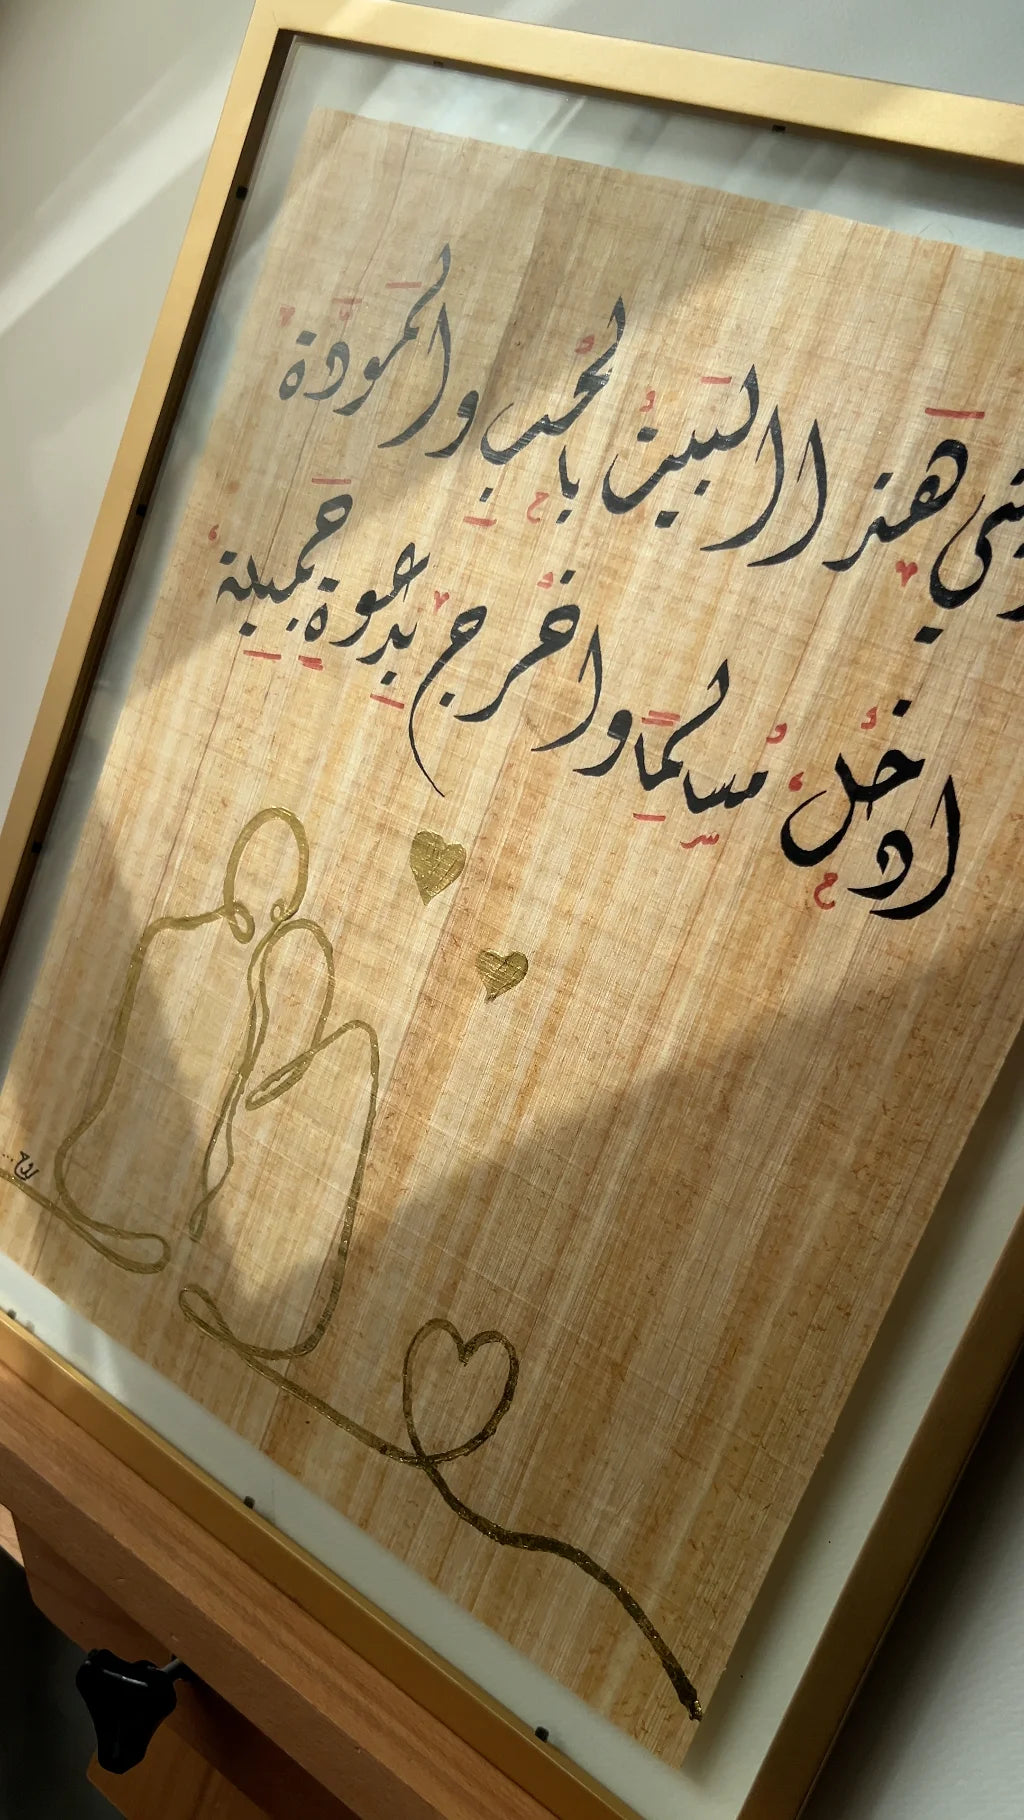 هَذا البَيْت بالحْب والمَوَدَّة
ادخُل مُسلِماً واخْرج بِدعوةٍ جَميلِة